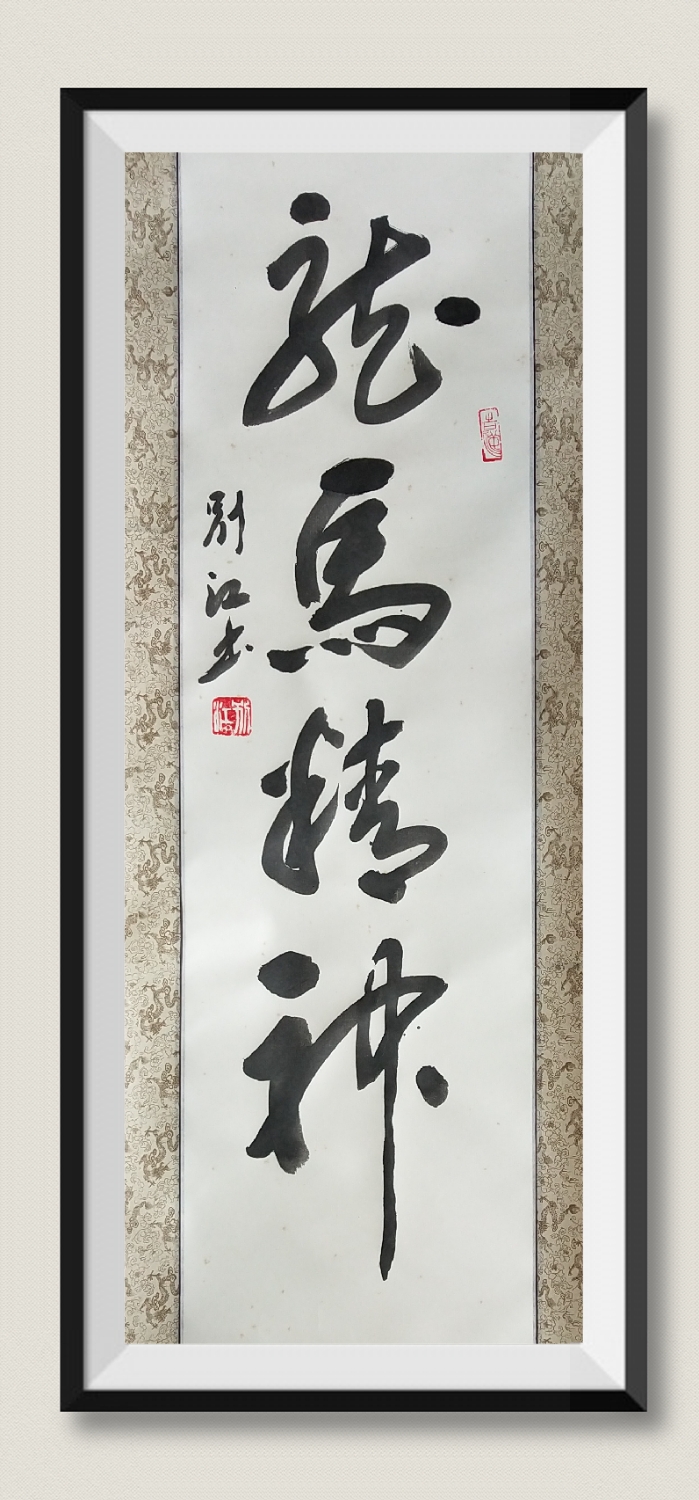 龍馬精神
江书